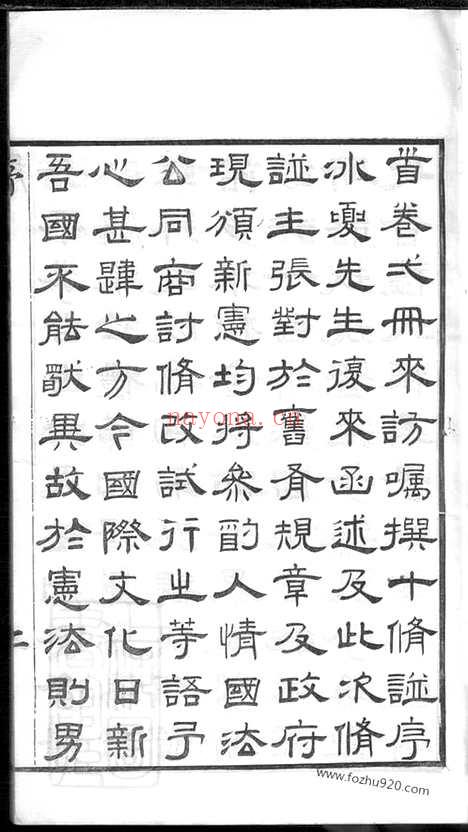 首卷弌冊來訪嘱撰十脩諩序
冰夔先生復來函述及此次脩
諩主張對於舊有規章及政府
現頒新憲均將參酌人情國法
公同商討脩改試行之等語予
心甚韙之方今國際文化日新
吾國不能異故於憲法則男
nayona.cn
www.fozhu920.com